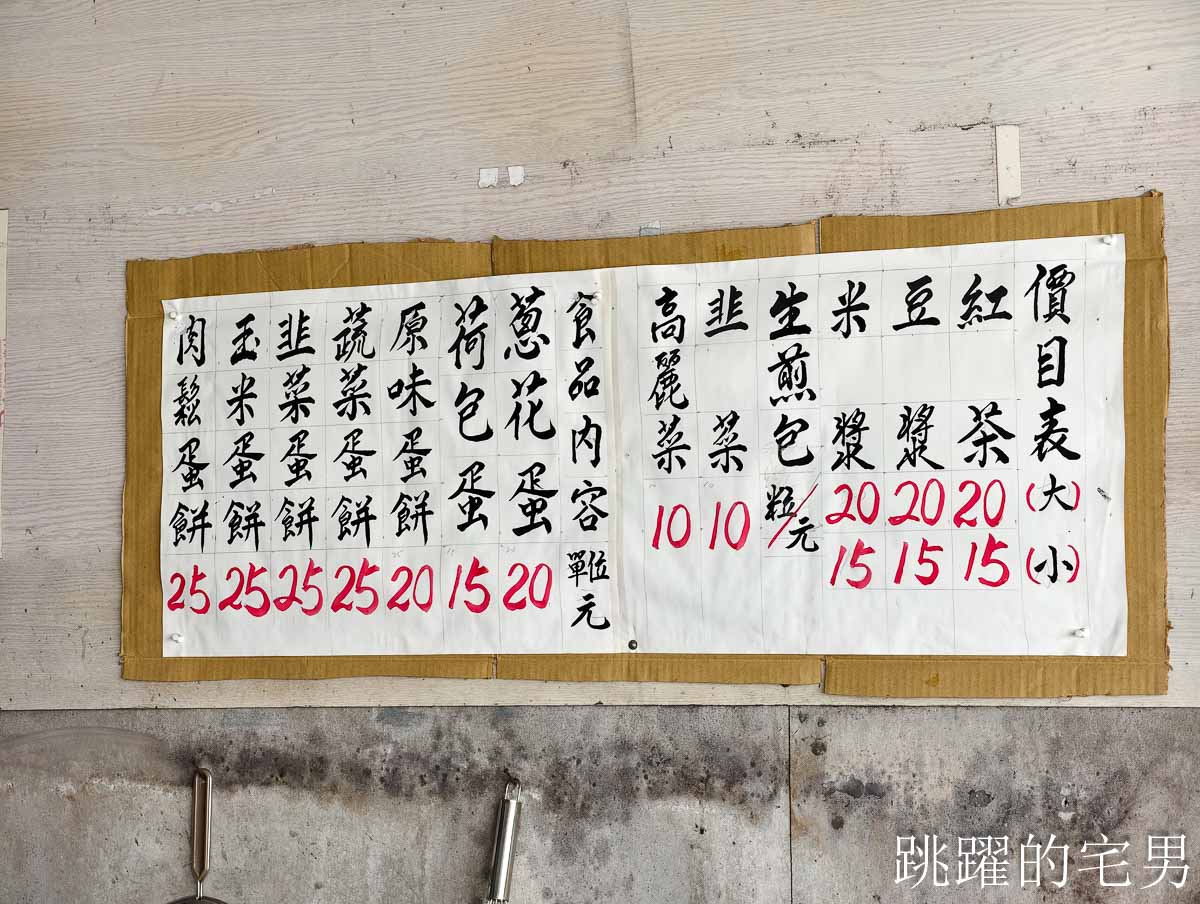 價目表(大)(小)
紅茶 20 15
豆漿 20 15
米漿 20 15
生煎包 粒/元
韭菜 10
高麗菜 10
食品內容 單位元
蔥花蛋 20
荷包蛋 15
原味蛋餅 20
蔬菜蛋餅 25
韭菜蛋餅 25
玉米蛋餅 25
肉鬆蛋餅 25
跳躍的宅男